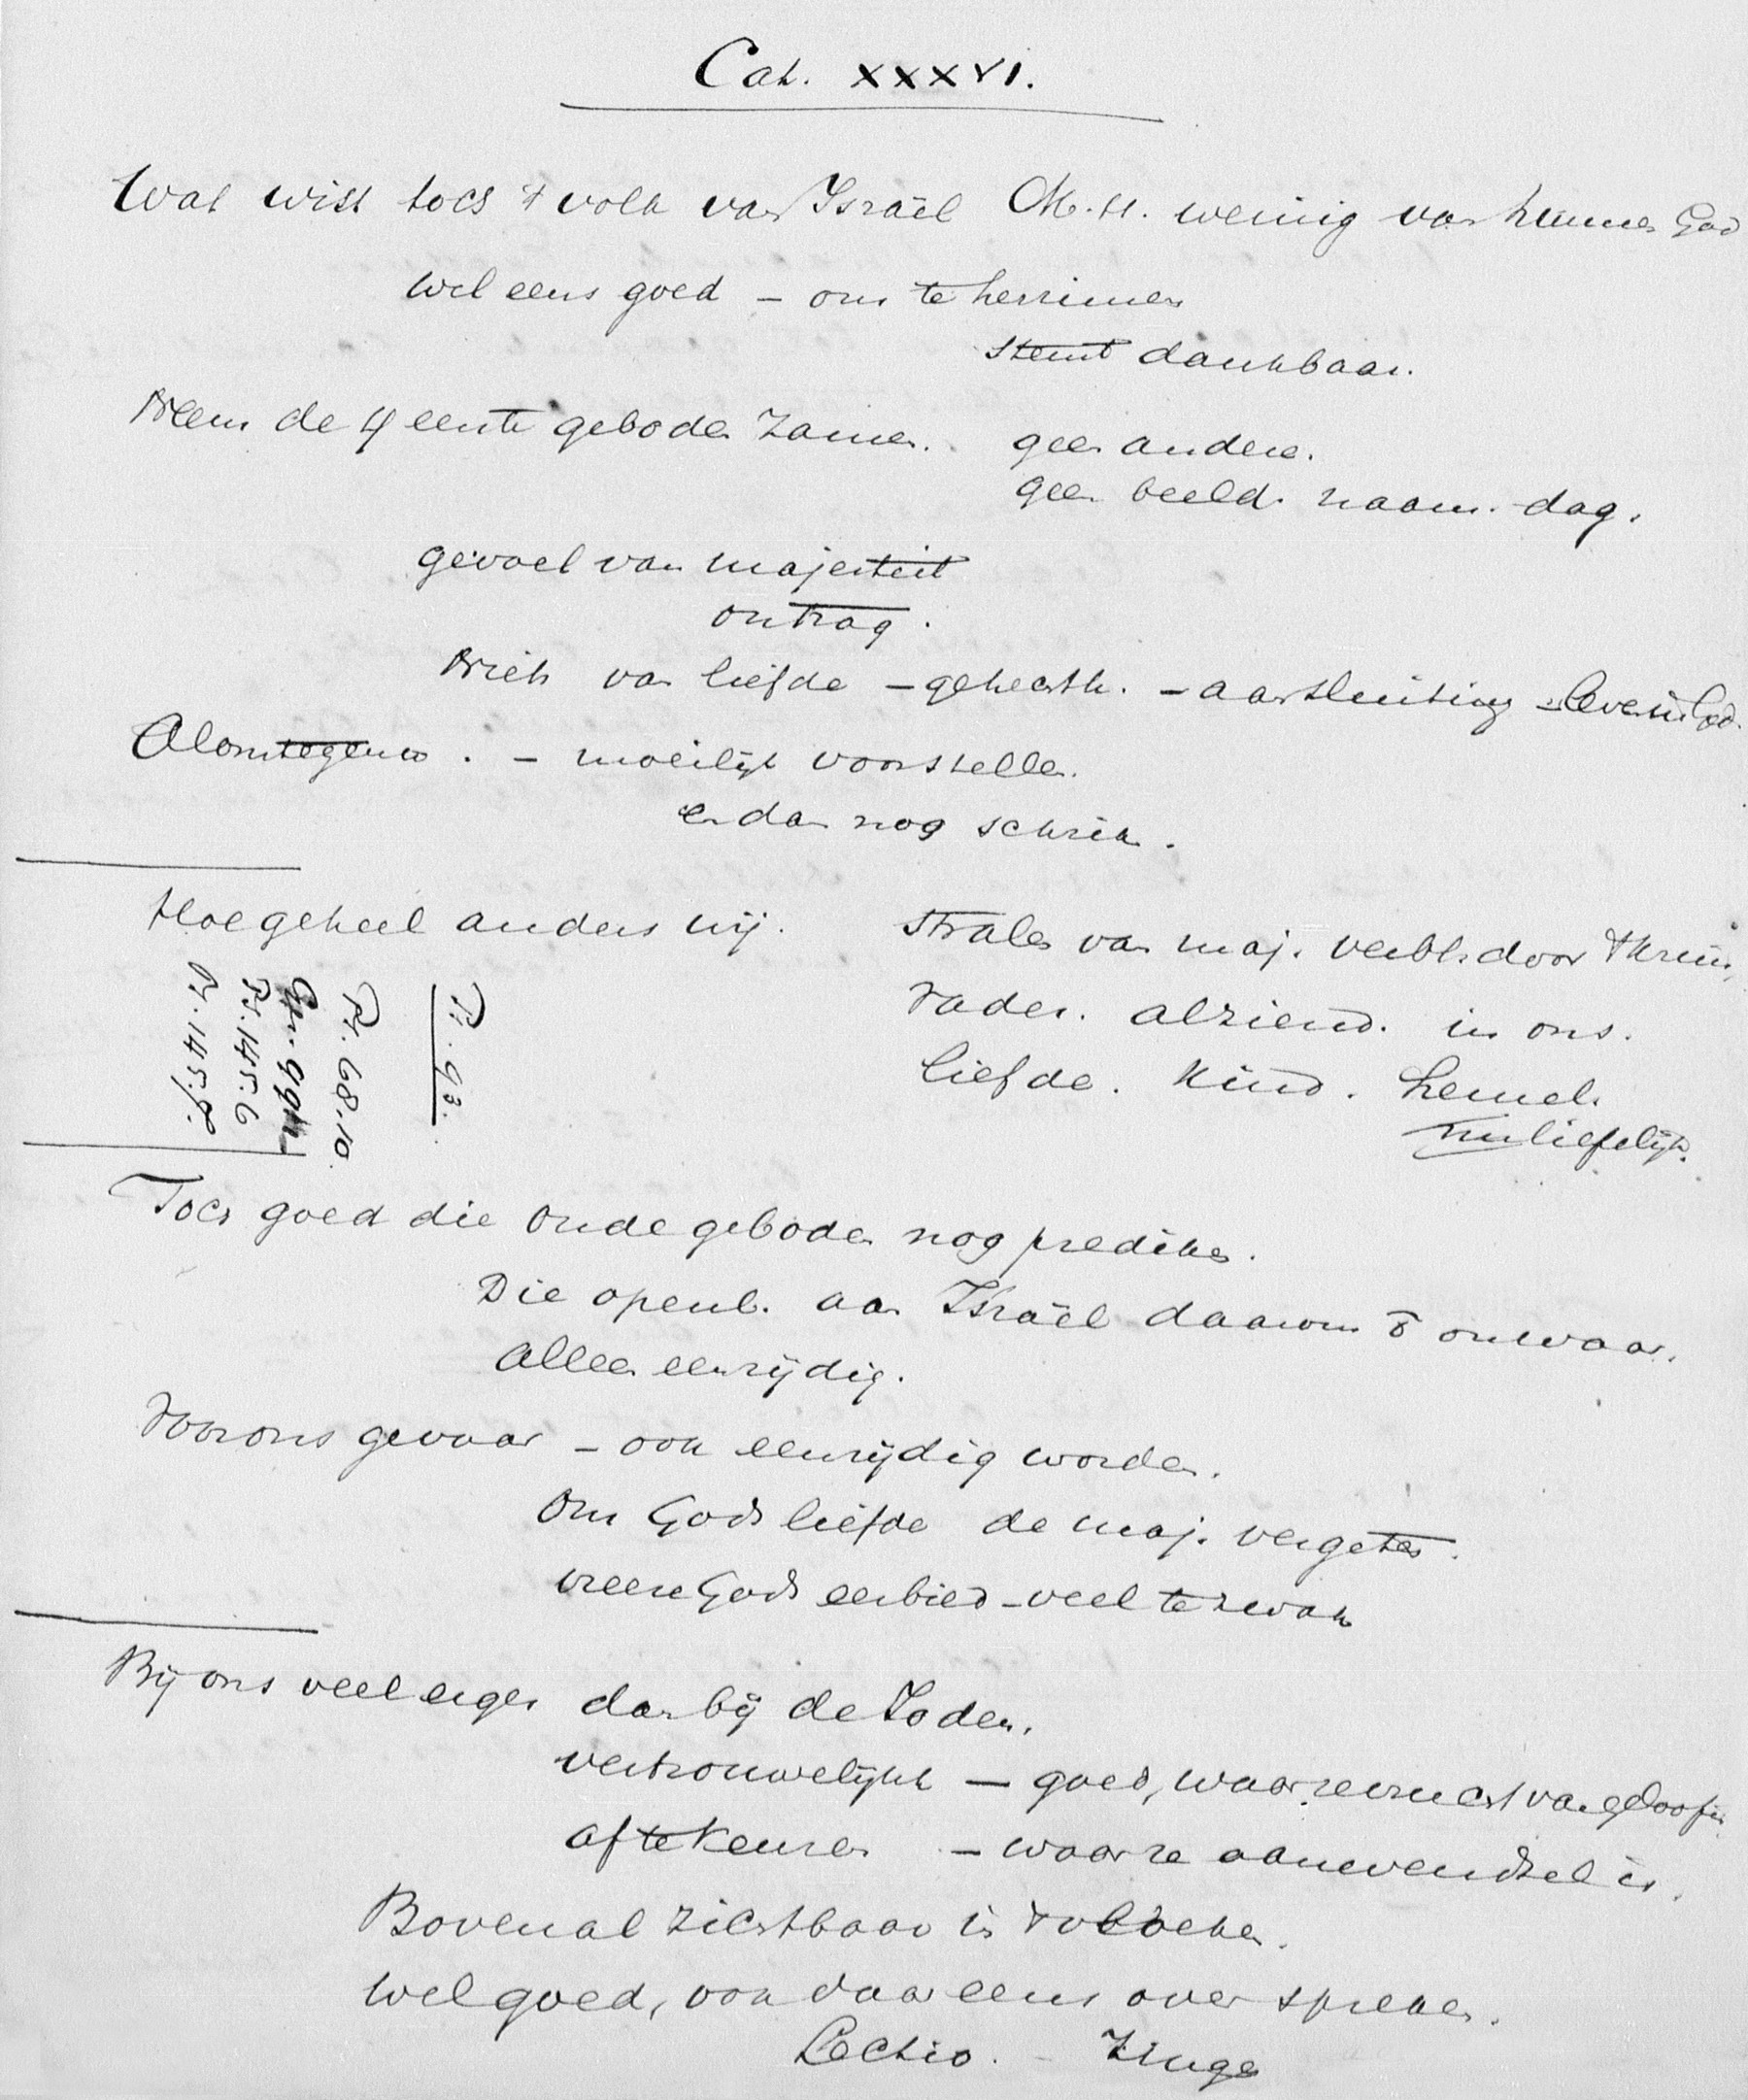 Cat. XXXVI.
Wat wist toch 't volk van Israël M.H. weinig van hunnen God
wel eens goed – om te herinneren
stemt dankbaar.
Neem de 4 eerste geboden zamen. geen andere.
geen beeld. naam. dag.
gevoel van majesteit
ontzag.
Niets van liefde – gehechth. – aansluiting – leven in God.
Alomtegenw. – moeilijk voorstellen.
en dan nog schrik.
Hoe geheel anders wij. Stralen van maj. verbl. door 't kruis
Vader. alziend. in ons.
liefde. Kind. hemel.
nu liefelijk.
Ps. 93.
Ps. 68.10
Gez.
Ps. 145.6
Ps. 145.
Toch goed die oude geboden nog prediken.
Die openb. aan Israël daarom õ onwaar.
Alleen eenzijdig.
Voor ons gevaar – ook eenzijdig worden.
Om Gods liefde de maj. vergeten.
vreeze Gods eerbied – veel te zwak
Bij ons veel erger dan bij de Joden.
vertrouwelijkh – goed, waar ze vrucht van geloof is
af te keuren – waar ze aanwendsel is.
Bovenal zichtbaar is 't vloeken.
Wel goed, ook daar eens over spreken.
Lectio. – Zingen